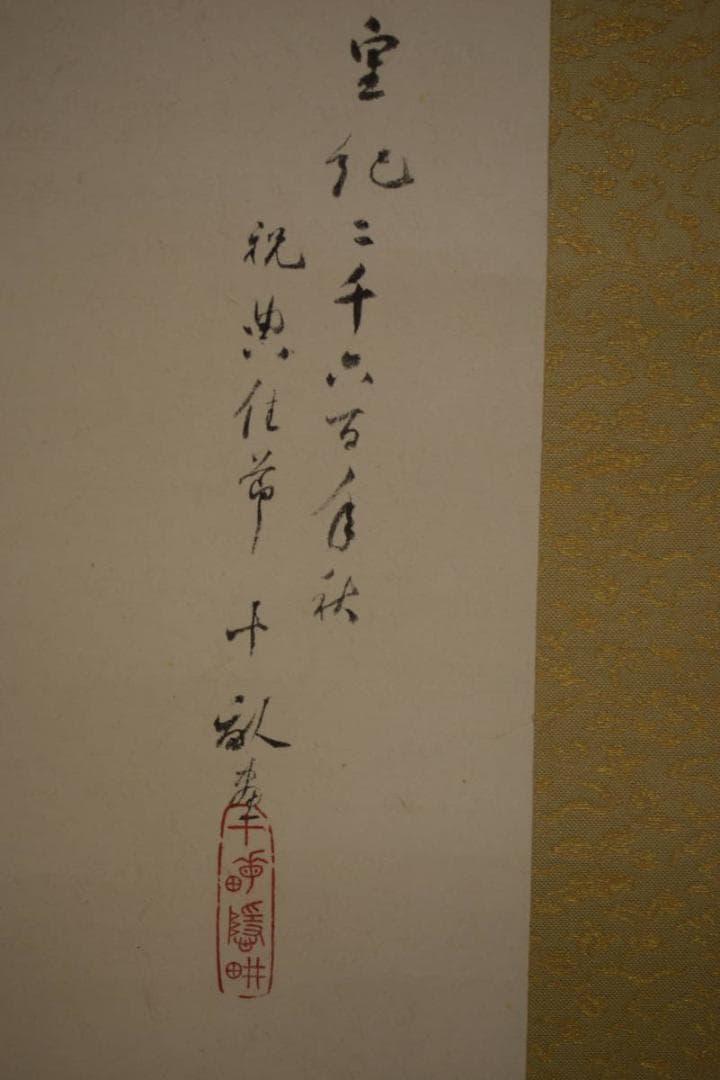 皇紀二千六百年秋
祝典佳節 十畝畫
十畝